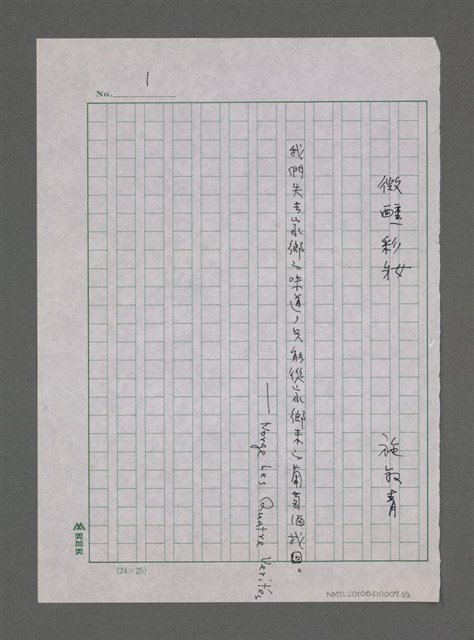 No. 1
微醺彩妝
施叔青
我們失去家鄉的味道,只能從家鄉來的葡萄酒找回。
——Norge Les Quatre Verités
(24×25)
NMTL20100410007